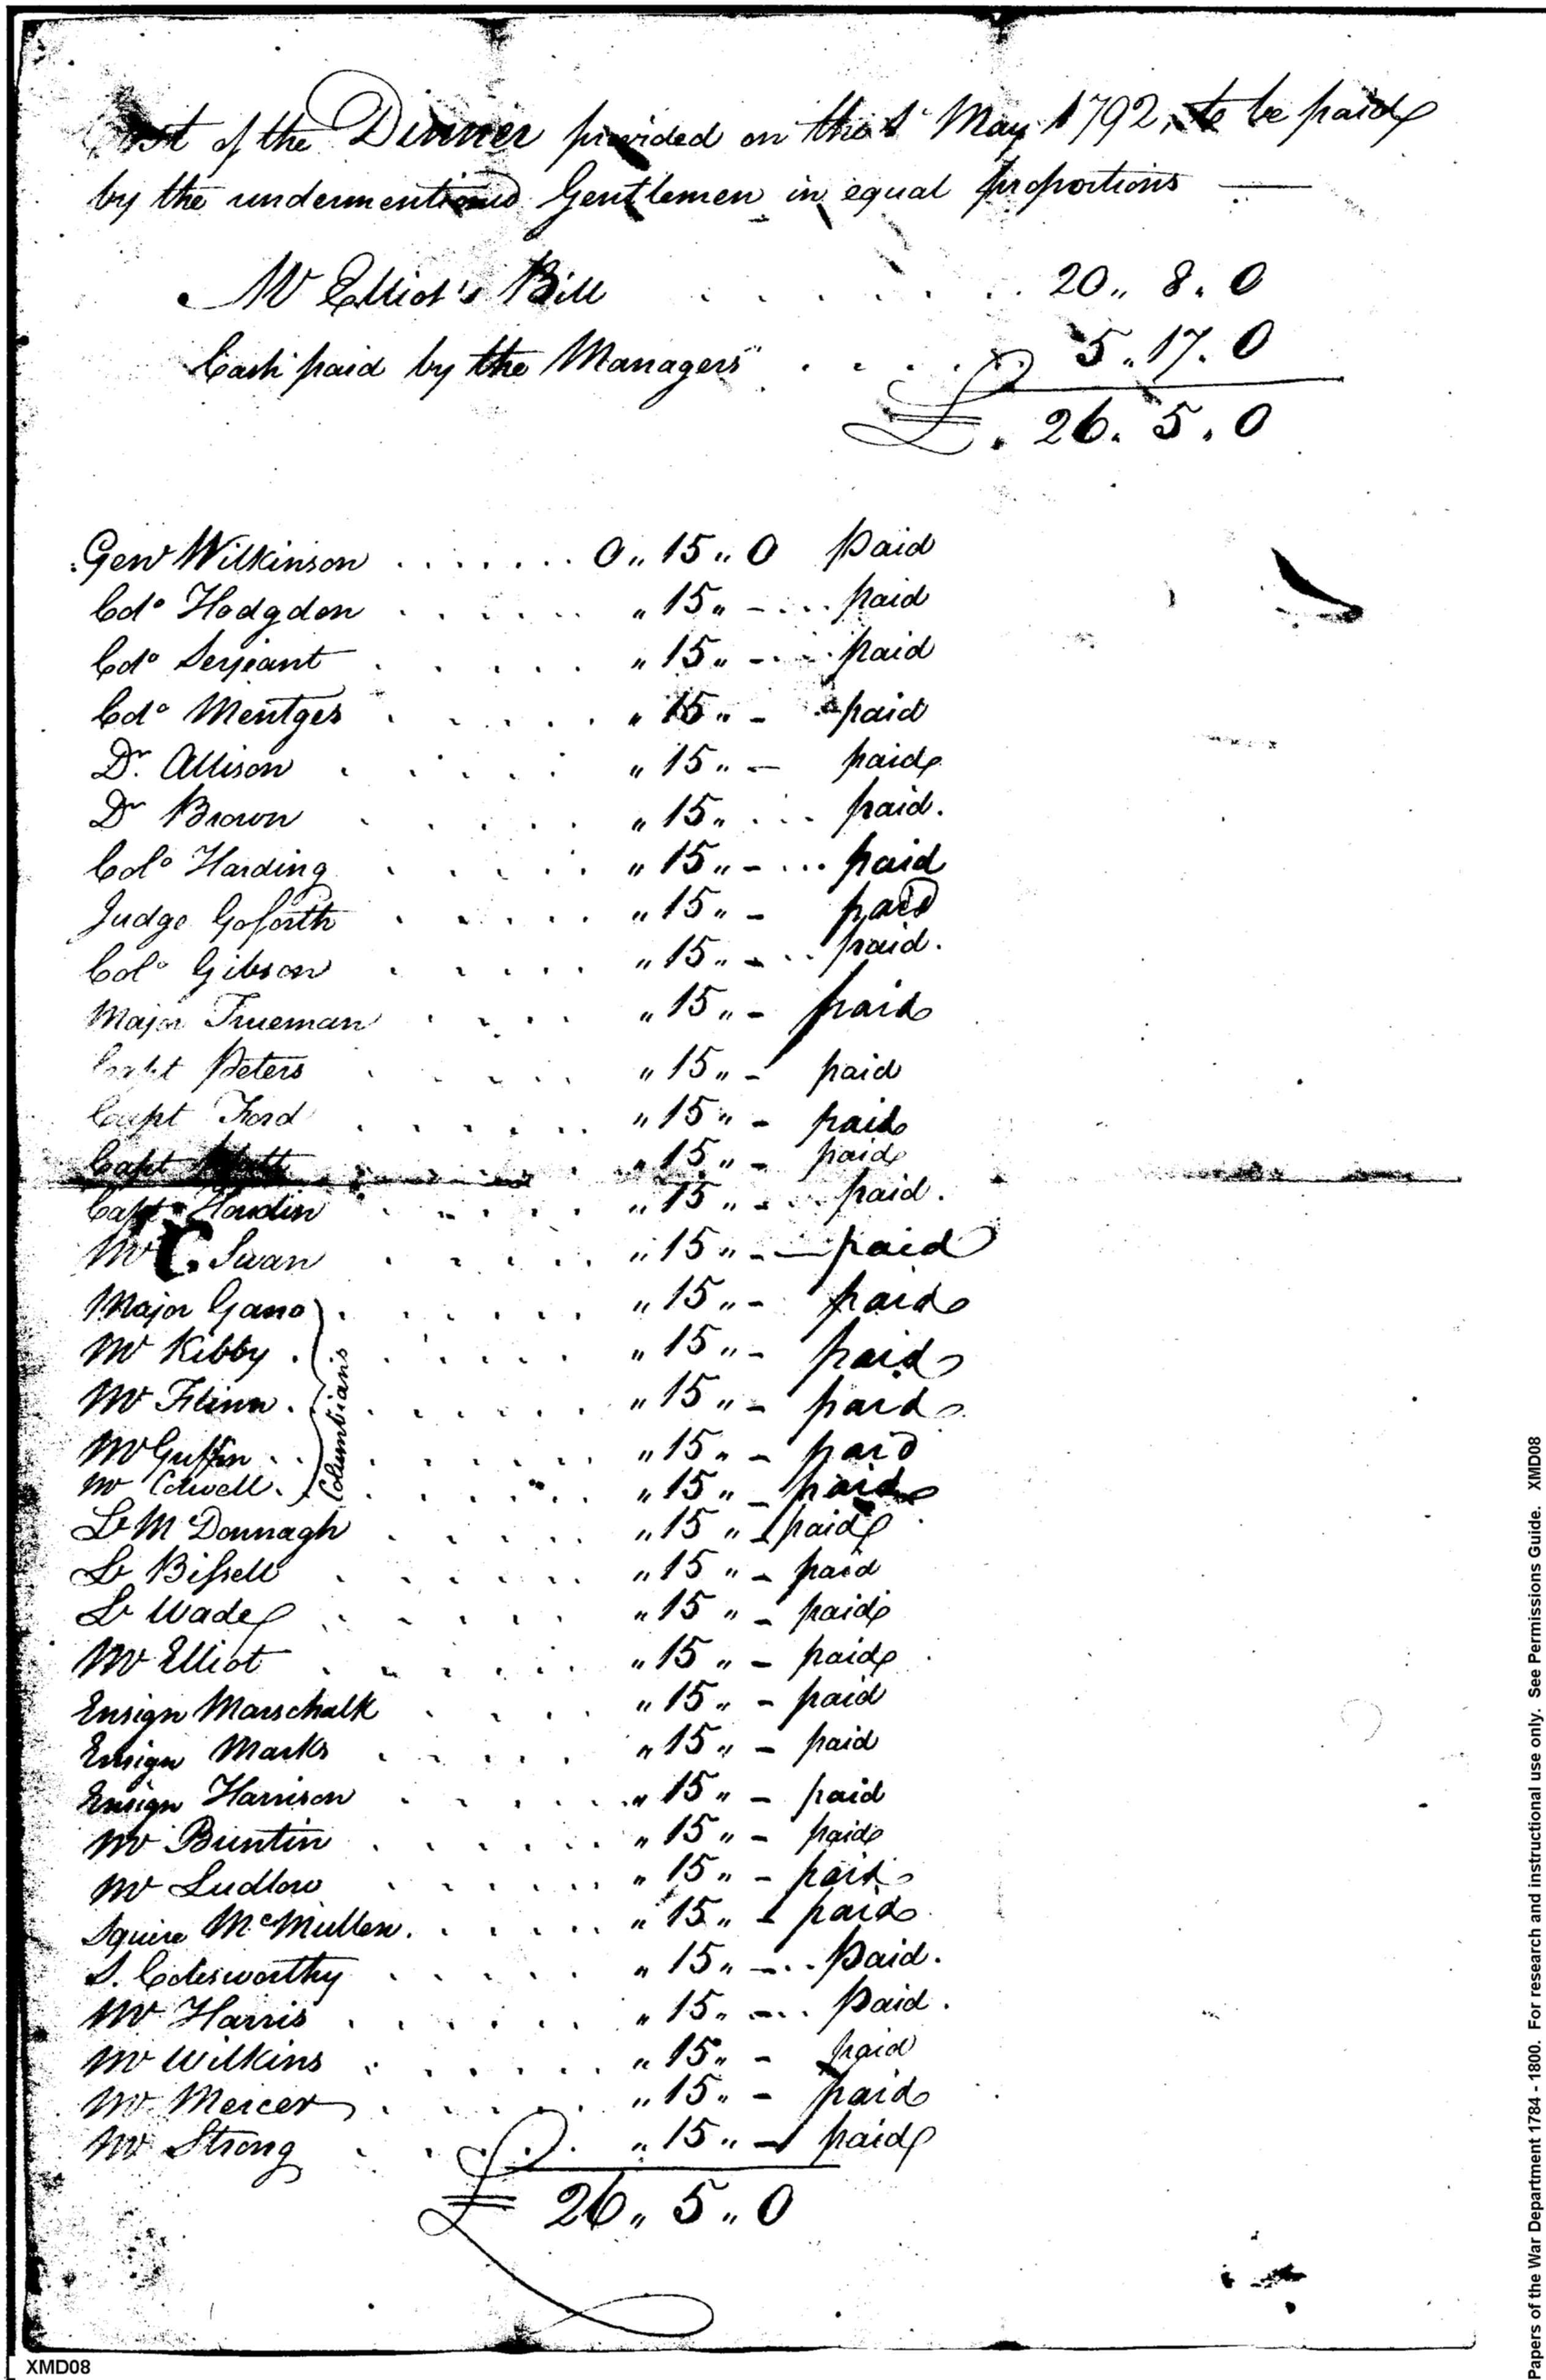 Cost of the Dinner provided on the 1st May 1792, to be paid
by the undermentioned Gentlemen in equal proportions —
Mr Elliot's Bill . . . . . . 20 " 8 . 0
Cash paid by the Managers . . . . 5 . 17 . 0
£ . 26 . 5 . 0
Genl Wilkinson . . . . . . . 0 " 15 " 0 Paid
Colo Hodgdon . . . . . . " 15 " - . . . paid
Colo Serjeant . . . . . " 15 " - . . . paid
Colo Mentges . . . . . " 15 " - paid
Dr. Allison . . . . . " 15 " - paid
Dr Brown . . . . . " 15 " . . . paid.
Colo Harding . . . . . " 15 " - . . . paid
Judge Goforth . . . . . " 15 " - paid
Colo Gibson . . . . . " 15 " - . . paid.
Major Trueman . . . . " 15 " - paid
Capt Peters . . . . . " 15 " - paid
Capt Ford . . . . . . " 15 " - paid
Capt . " 15 " - paid
Capt Hardin . . . . . " 15 " - . . paid.
Mr C. Swan . . . . . " 15 " - — paid
Major Gano . . . . . . " 15 " - paid
Mr Kibby . . . . . . " 15 " - paid
Mr Flinn . . . . . . . " 15 " - paid
Mr Guffin . . . . . . . " 15 " - paid
Mr Colwell . . . . . . . " 15 " - paid
Columbians
Lt McDonnagh . . . . . " 15 " - paid
Lt Bissell . . . . . . " 15 " - paid
Lt Wade . . . . . " 15 " - paid
Mr Elliot . . . . . . " 15 " - paid
Ensign Marschalk . . . . " 15 " - paid
Ensign Marks . . . . . " 15 " - paid
Ensign Harrison . . . . . . " 15 " - paid
Mr Buntin . . . . . . " 15 " - paid
Mr Ludlow . . . . . . " 15 " - paid
Squire McMullen . . . . . . " 15 " - paid
S. Cotesworthy . . . . . " 15 " - . . Paid.
Mr Harris . . . . . . " 15 " - . . Paid.
Mr Wilkins . . . . . . " 15 " - paid
Mr Mercer . . . . . " 15 " - paid
Mr Strong . . . . . " 15 " - paid
£ 26 " 5 " 0
XMD08
Papers of the War Department 1784 - 1800. For research and instructional use only. See Permissions Guide. XMD08